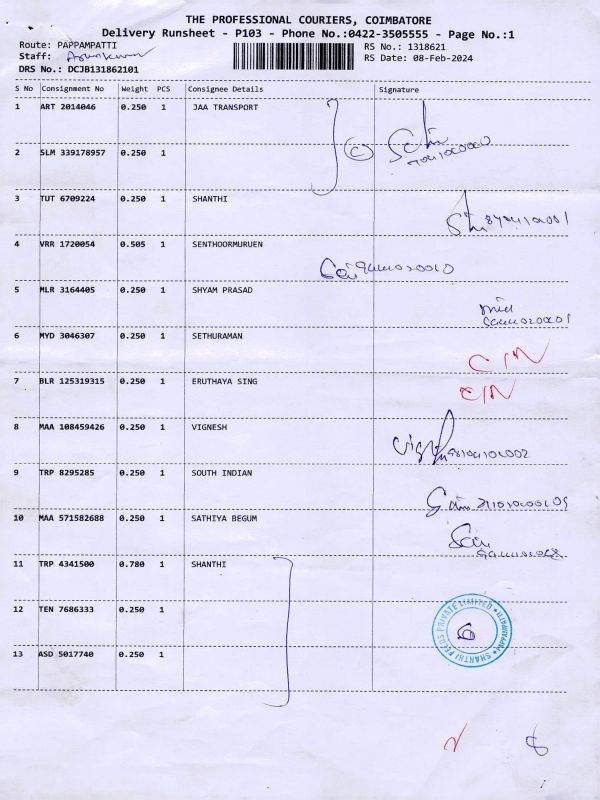 THE PROFESSIONAL COURIERS, COIMBATORE
Delivery Runsheet - P103 - Phone No.:0422-3505555 - Page No.:1
Route: PAPPAMPATTI
RS No.: 1318621
Staff:
RS Date: 08-Feb-2024
DRS No.: DCJB131862101
S No Consignment No Weight PCS Consignee Details Signature
1 ART 2014046 0.250 1 JAA TRANSPORT
2 SLM 339178957 0.250 1
3 TUT 6709224 0.250 1 SHANTHI
4 VRR 1720054 0.505 1 SENTHOORMURUEN
5 MLR 3164405 0.250 1 SHYAM PRASAD
6 MYD 3046307 0.250 1 SETHURAMAN
C/N
7 BLR 125319315 0.250 1 ERUTHAYA SING
C/N
8 MAA 108459426 0.250 1 VIGNESH
9 TRP 8295285 0.250 1 SOUTH INDIAN
10 MAA 571582688 0.250 1 SATHIYA BEGUM
11 TRP 4341500 0.780 1 SHANTHI
12 TEN 7686333 0.250 1
SHANTHI FEEDS PRIVATE LIMITED
PAPPAMPATTI
13 ASD 5017740 0.250 1